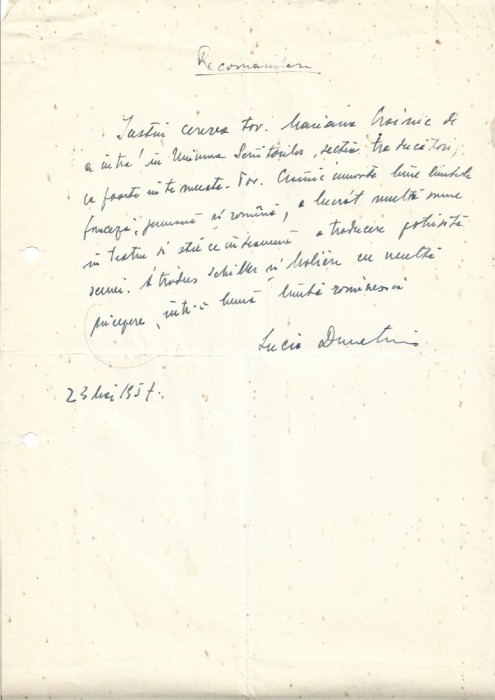 Recomandare
Susțin cererea tov. Mariana Crainic de
a intra în Uniunea Scriitorilor, secția traducători,
ce foarte Tov. cunoaște bine limbile
franceză, germană și română, a lucrat multă vreme
în teatru și știe ce înseamnă o traducere potrivită
scenei. A tradus Schiller și Molière cu multă
pricepere, într-o bună limbă românească
Lucia Demetrius
23 Mai 1957.